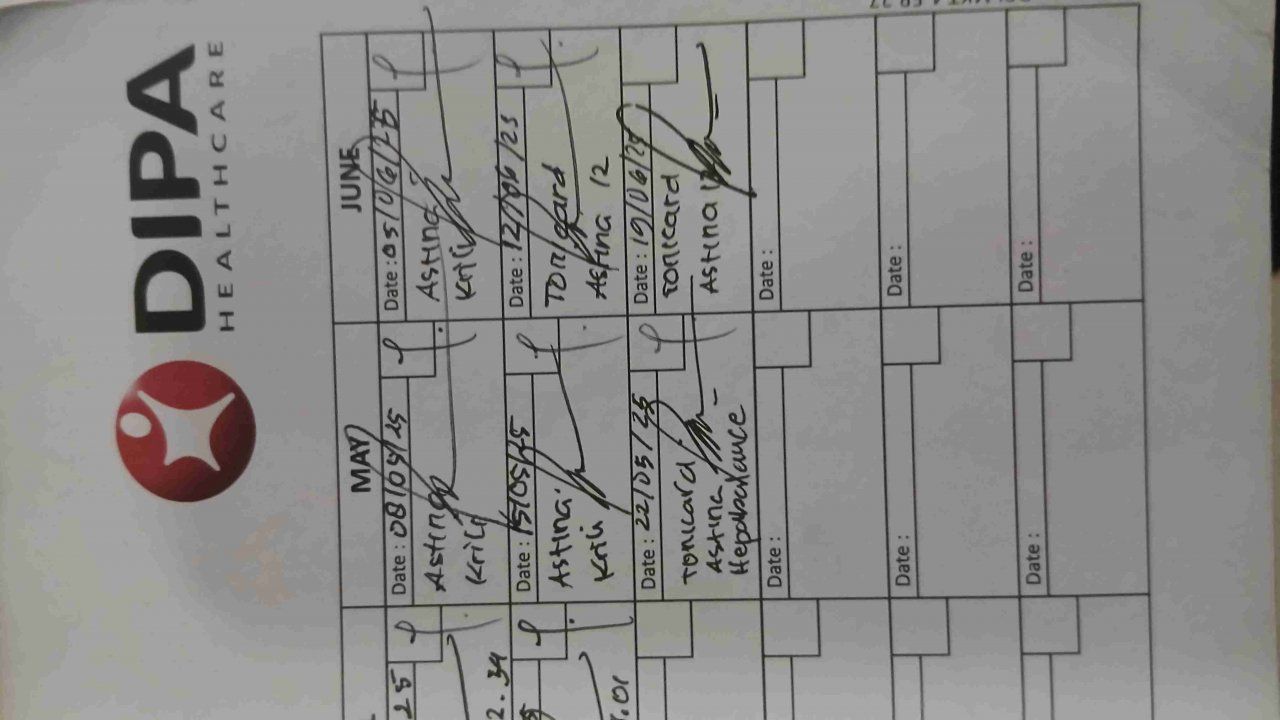 DIPA
HEALTHCARE
MAY
JUNE
25
Date : 08/05/25
Date : 05/06/25
Astina
Astina
Krili
Krili
2.34
Date : 15/05/25
Date : 12/06/25
Astina
Tonicard
Krili
Astina 12
7.01
Date : 22/05/25
Date : 19/06/25
Tonicard
Tonicard
Astina
Astina
Date :
Date :
Date :
Date :
Date :
Date :